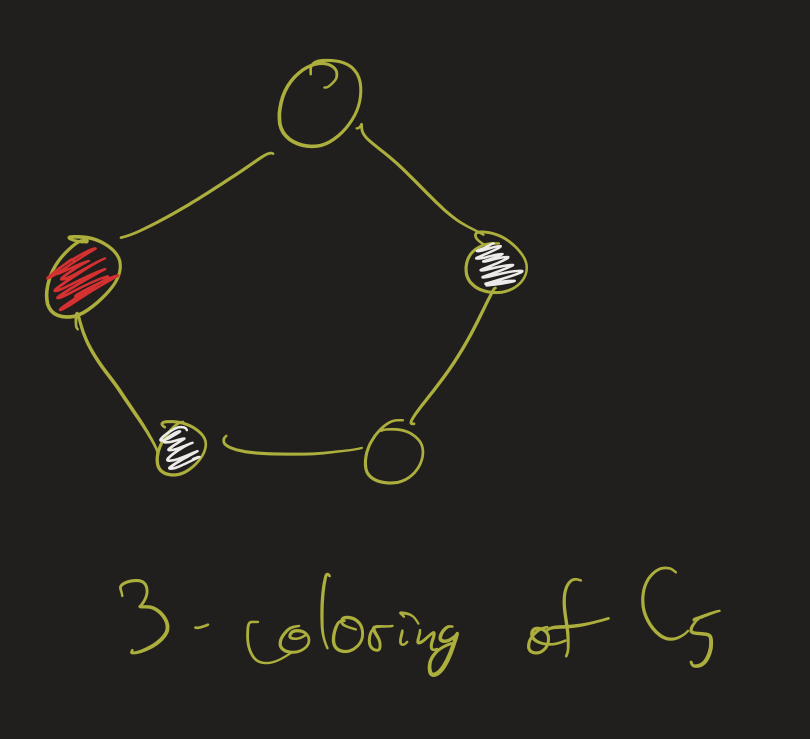 3-coloring of C₅